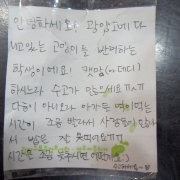 안녕하세요? 광양고에 다
니고 있는 고양이를 반려하는
학생이에요! 캣맘(아 대디)
하시느라 수고가 많으세요ㅠㅅㅠ
다름이 아니오라 아가들 밥 먹이는
시간이 조금 빨라서 사람들이
밥을 잘 못 먹어요ㅠㅠ
시간을 조금 늦추시면 어떨까요..?